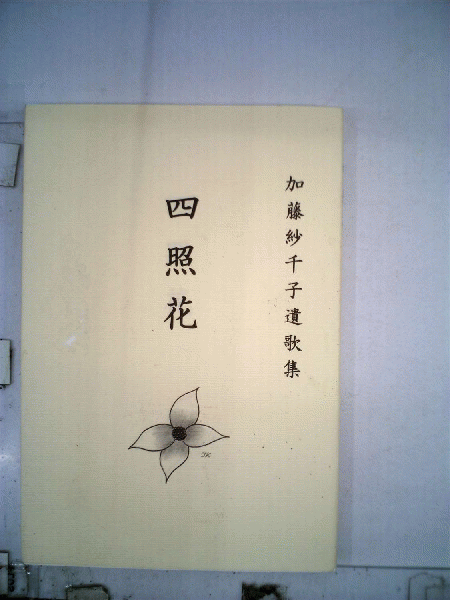 加藤紗千子遺歌集
四照花